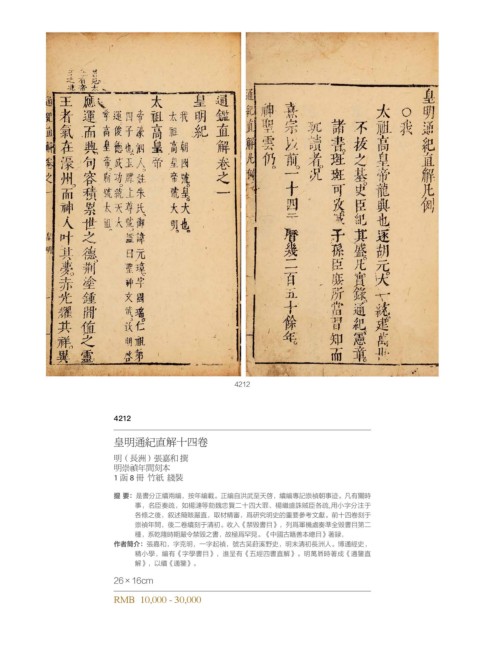 皇明通紀直解凡例
○我
太祖高皇帝龍興也逐胡元大一統
不拔之基史臣記其盛凡實錄通紀憲章
諸書班班可攷誠子孫臣庶所當習知而
玩讀者況
熹宗以前一十四 曆幾二百五十餘年
神聖雲仍
通鑑直解卷之一
皇明紀
太祖高皇帝
應運而興句容積累世之德荆塗鍾
王者氣在濠州而神人叶其夢赤光燿其祥異
4212
4212
皇明通紀直解十四卷
明（長洲）張嘉和 撰
明崇禎年間刻本
1 函 8 冊 竹紙 綫裝
提 要：是書分正續兩編，按年編載。正編自洪武至天啓，續編專記崇禎朝事迹。凡有關時
事，名臣奏疏，如楊漣等劾魏忠賢二十四大罪，楊繼盛誅賊臣各疏，用小字分注于
各條之後，叙述簡略嚴直，取材精審，爲研究明史的重要參考文獻。前十四卷刻于
崇禎年間，後二卷續刻于清初，收入《禁毀書目》，列爲軍機處奏準全毀書目第二
種，系乾隆時期嚴令禁毀之書，故極爲罕見。《中國古籍善本總目》著録。
作者簡介：張嘉和，字克明，一字起禎，號古吴蔚溪野史，明末清初長洲人。博通經史，
精小學，編有《字學書目》，進呈有《五經四書直解》。明萬曆時著成《通鑒直
解》，以續《通鑒》。
26 × 16cm
RMB 10,000 - 30,000